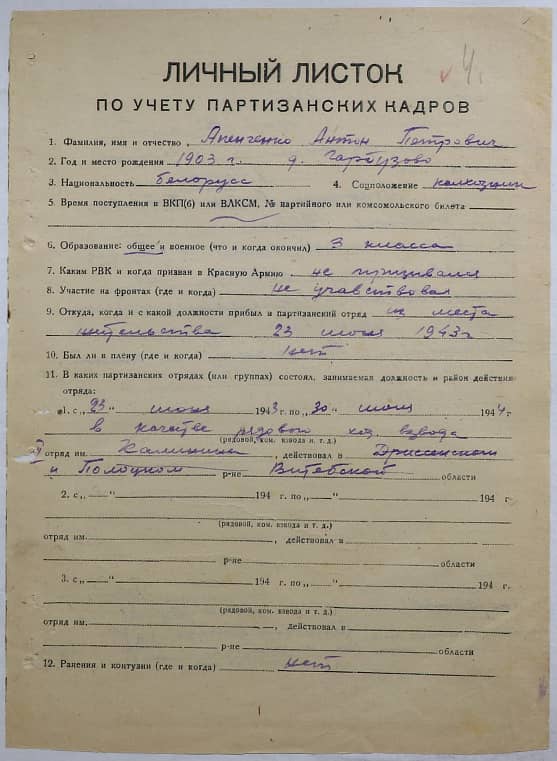 4.
ЛИЧНЫЙ ЛИСТОК
ПО УЧЕТУ ПАРТИЗАНСКИХ КАДРОВ
1. Фамилия, имя и отчество Апенченко Антон Петрович
2. Год и место рождения 1903 г. д. Гарбузово
3. Национальность белорусс 4. Соцположение колхозник
5. Время поступления в ВКП(б) или ВЛКСМ, № партийного или комсомольского билета
6. Образование: общее и военное (что и когда окончил) 3 класса
7. Каким РВК и когда призван в Красную Армию не призывался
8. Участие на фронтах (где и когда) не учавствовал
9. Откуда, когда и с какой должности прибыл в партизанский отряд из места
жительства 23 июля 1943 г
10. Был ли в плену (где и когда) нет
11. В каких партизанских отрядах (или группах) состоял, занимаемая должность и район действия
отряда:
1. с „23“ июля 1943 г. по „30“ июля 1944 г.
в качестве рядового ком. взвода
(рядовой, ком. взвода и т. д.)
отряд им. Калинина, действовал в Дриссенском
и Полоцком р-не Витебской области
2. с „ “ 194 г. по „ “ 194 г.
(рядовой, ком. взвода и т. д.)
отряд им. , действовал в
р-не области
3. с „ “ 194 г. по „ “ 194 г.
(рядовой, ком. взвода и т. д.)
отряд им. , действовал в
р-не области
12. Ранения и контузии (где и когда) нет